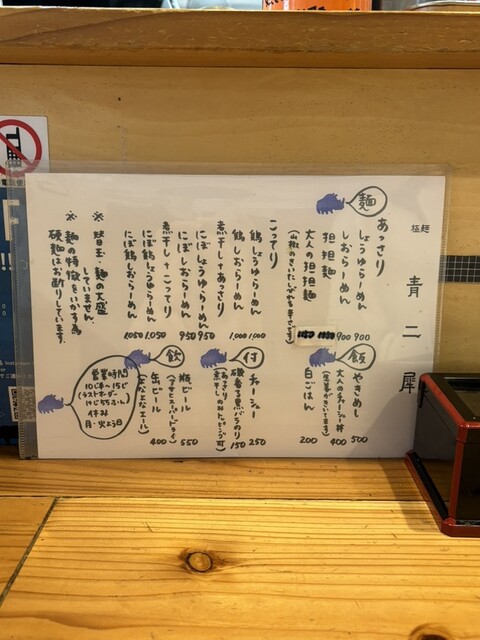 極麺
青二犀
麺
あっさり
しょうゆらーめん 900
しおらーめん 900
担担麺
大人の担担麺
(山椒のきいたしびれる辛さです)
こってり
鶏しょうゆらーめん 1,000
鶏しおらーめん 1,000
煮干し+あっさり
にぼしょうゆらーめん 950
にぼしおらーめん 950
煮干し+こってり
にぼ鶏しょうゆらーめん 1,050
にぼ鶏しおらーめん 1,050
※替玉・麺の大盛
していません。
※麺の特徴をいかす為
硬麺はお断りしています。
飯
やきめし 500
大人のチャーシュー丼 400
(生姜がきいてます)
白ごはん 200
付
チャーシュー 250
磯香る黒バラのり 150
(あっさり
煮干しのみトッピング可)
飲
瓶ビール 550
(アサヒスーパードライ)
缶ビール 400
(よなよなエール)
営業時間
10じ半〜15じ
(ラストオーダー
休み
月・火よう日